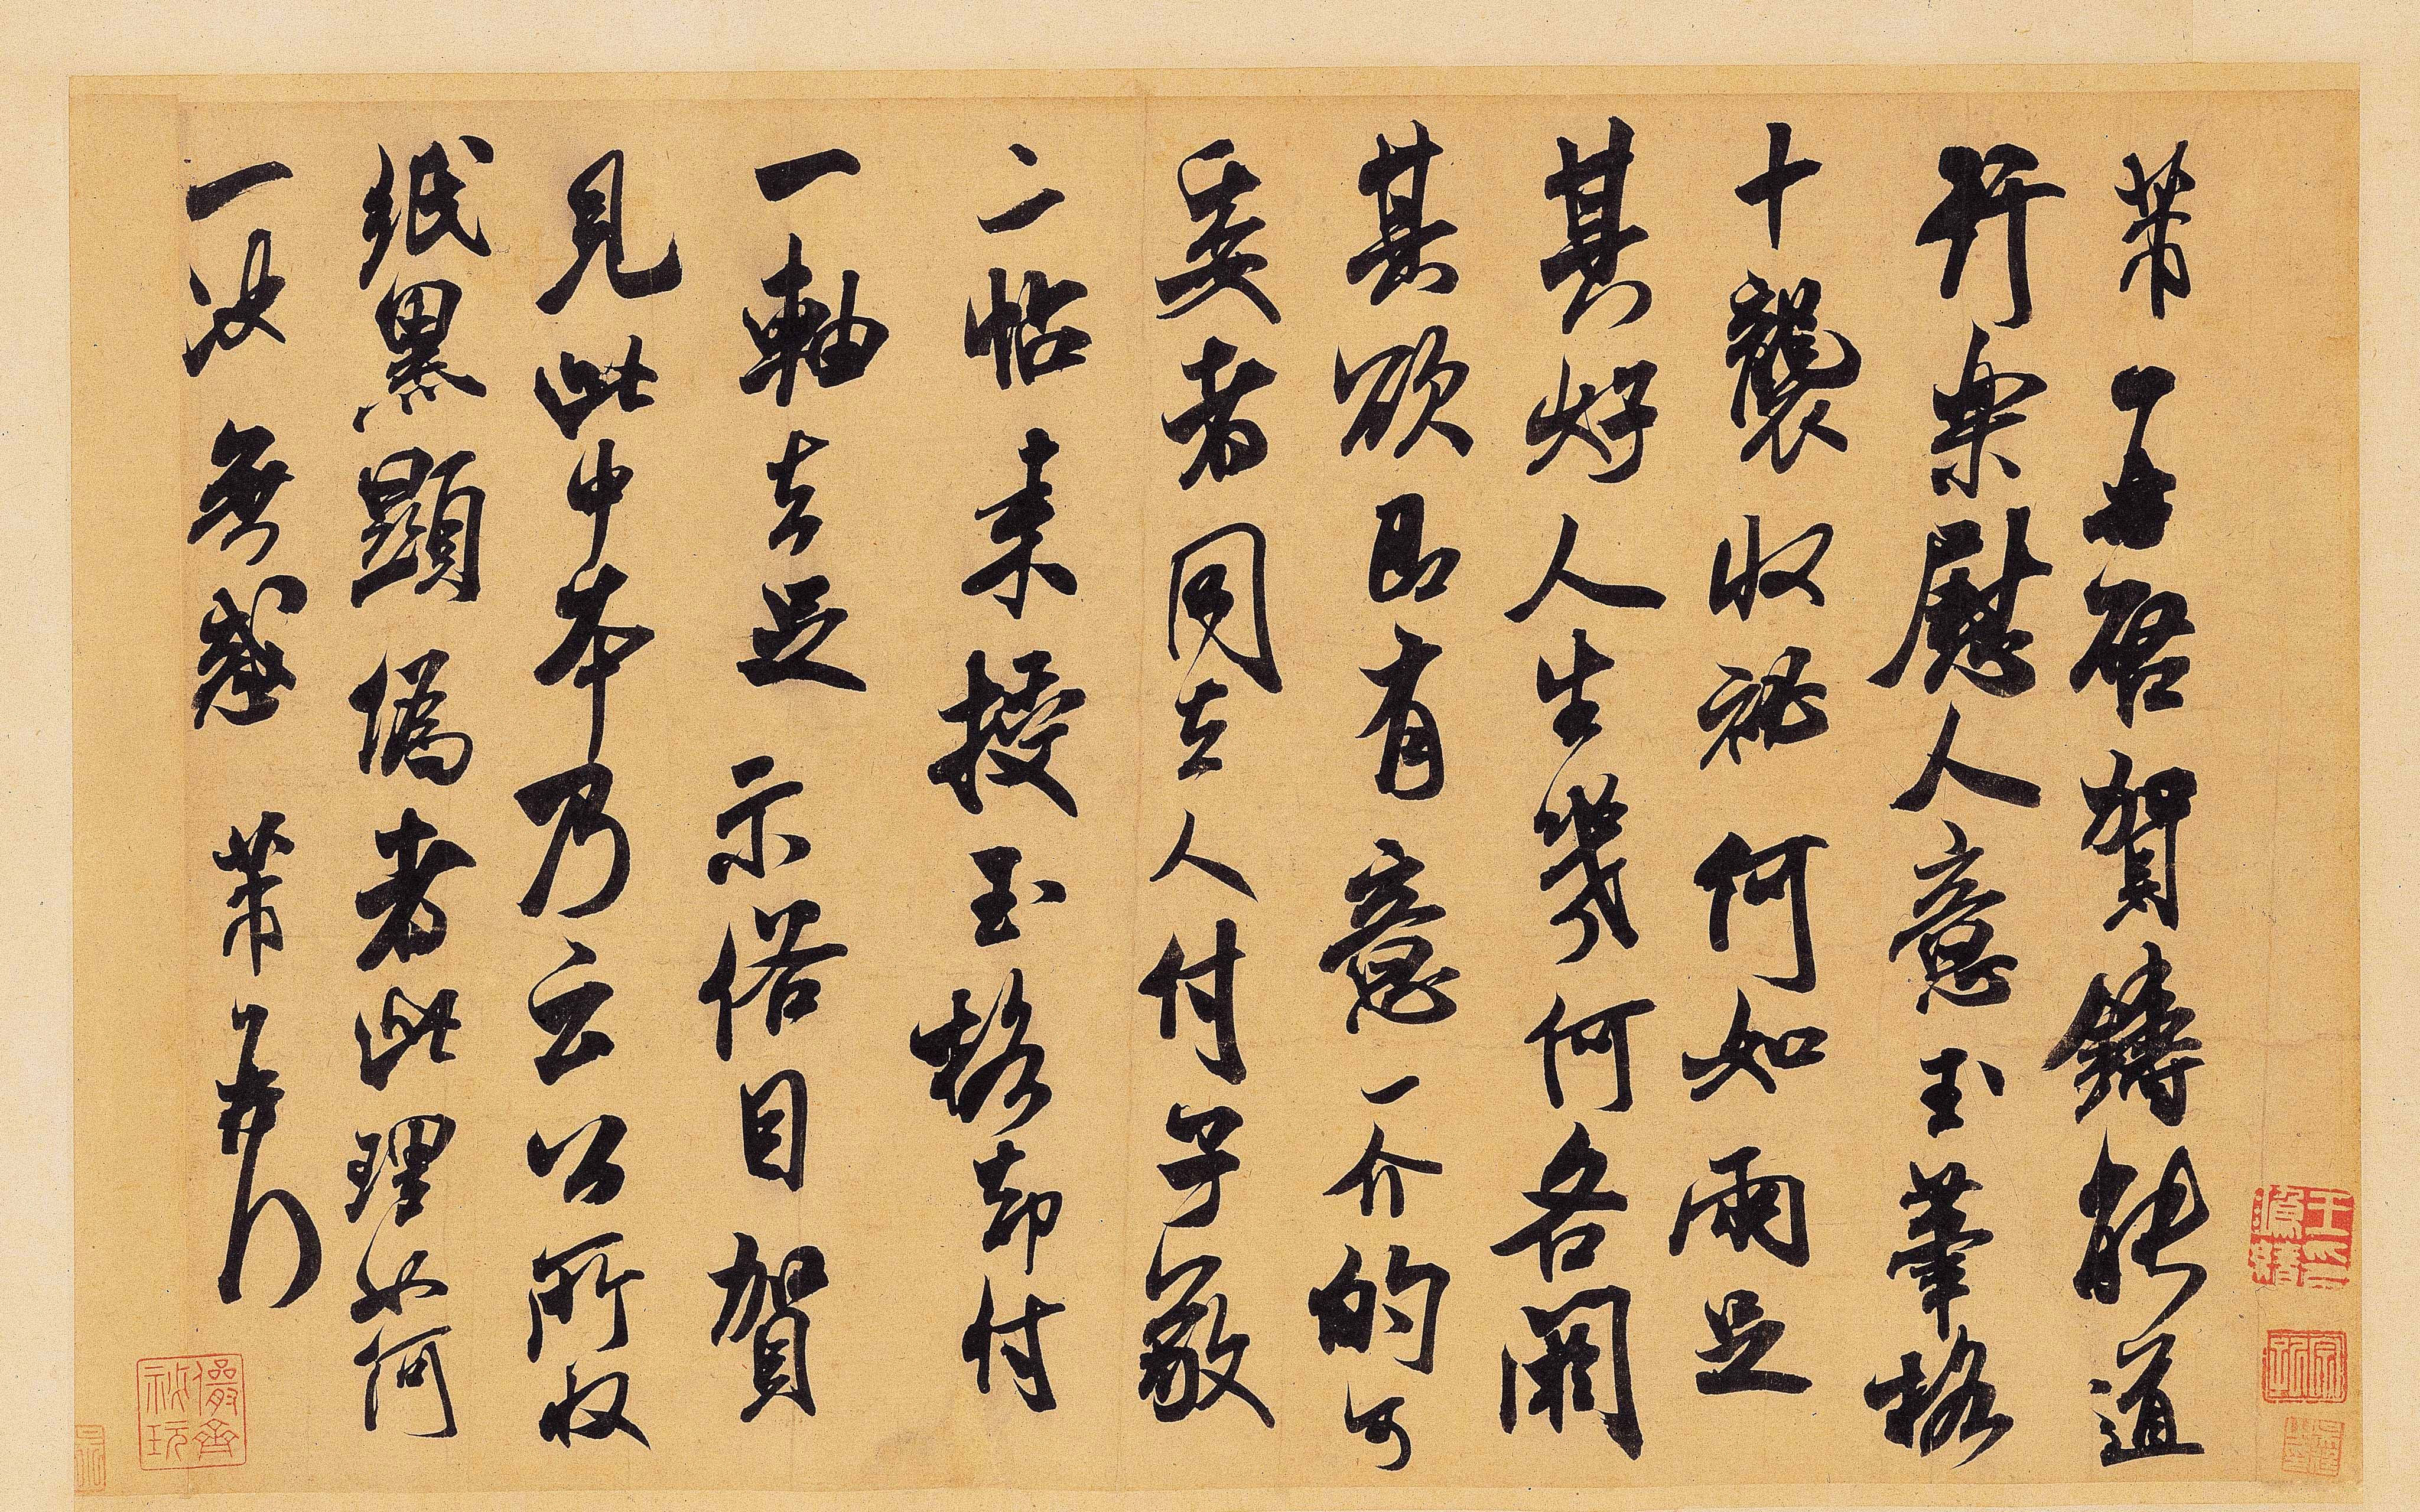 芾再啟賀鑄能道
行樂慰人意玉筆格
十襲收祕何如兩足
其好人生幾何各闕
其欲即有意一介的可
委者同去人付子敬
二帖來授玉格却付
一軸去足示俗目賀
見此中本乃云公所收
紙黑顯偽者此理如何
一決無惑芾再拜
王鴻緒印
儼齋祕玩